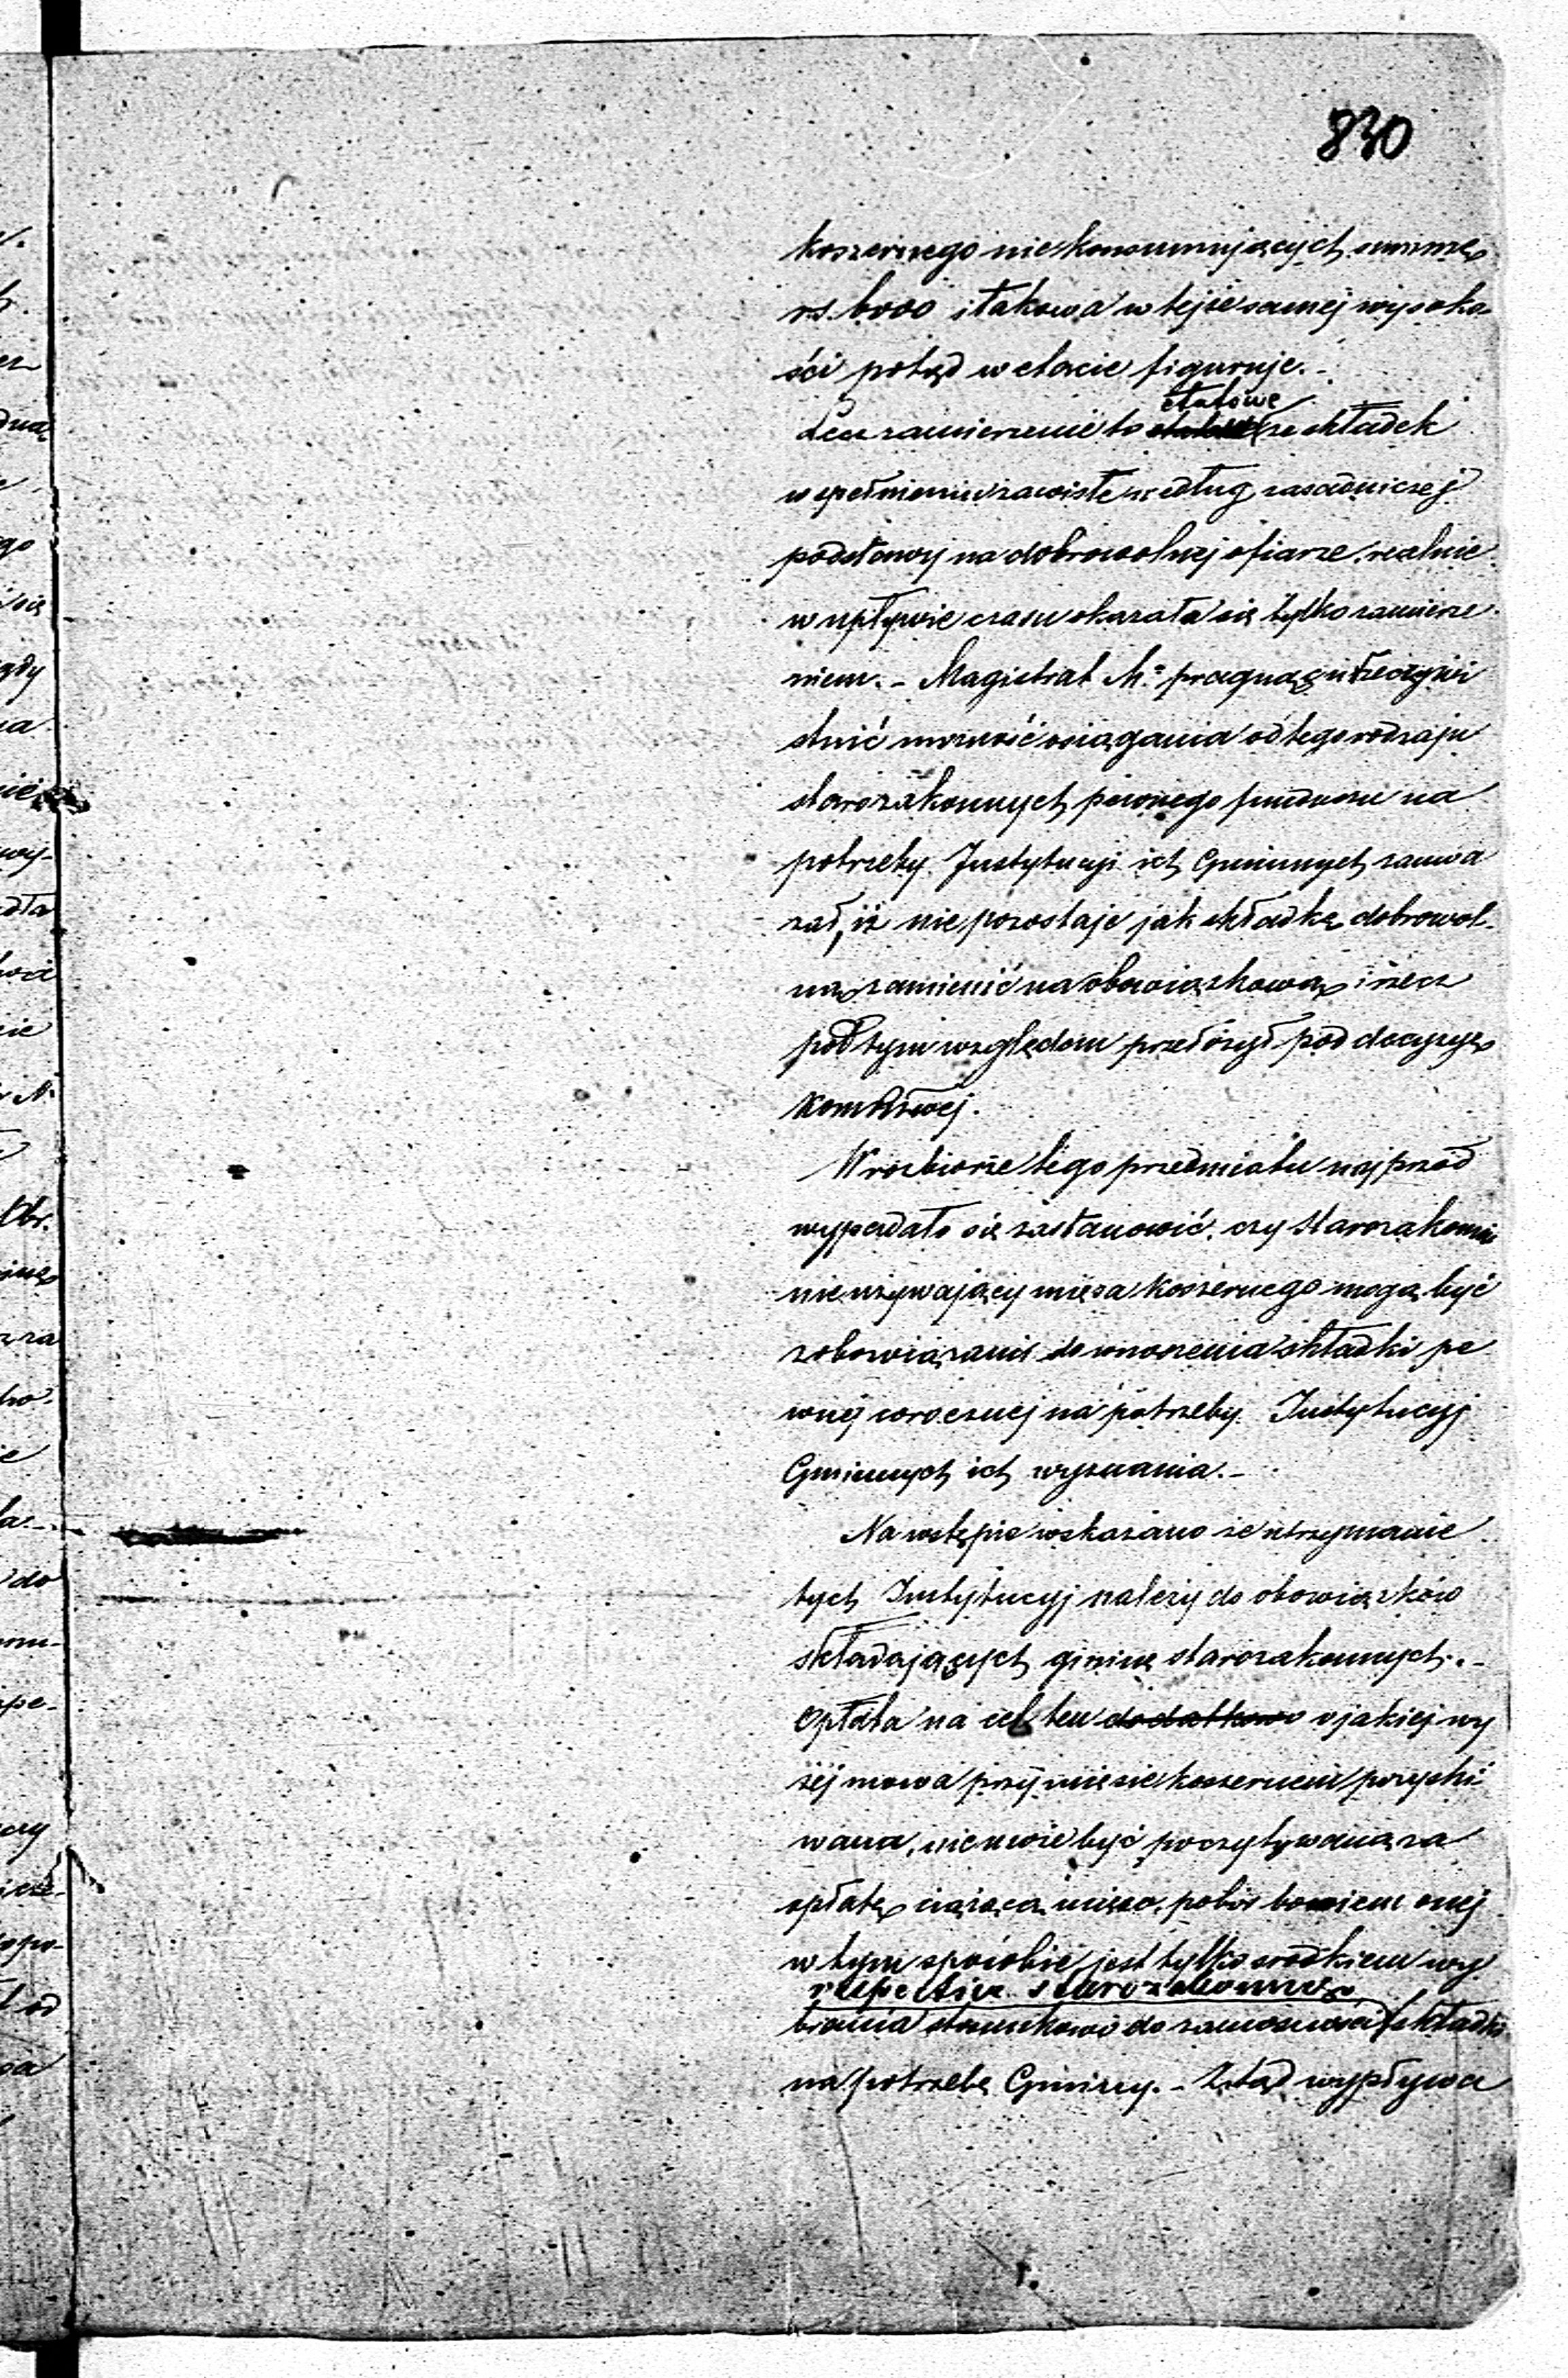 830
koszernego nie konsumujących summę
rs. 6000 i takowa w tejże samej wysoko-
ści potąd w etacie figuruje.-
etatowe
Lecz zamierzenie to ze składek
w spełnieniu zawisłe według zasadniczej
podstawy na dobrowolnej ofiarze, realnie
w upływie czasu okazała się tylko zamierze
niem.- Magistrat M. pragnąc urzeczywi
stnić możność osiągania od tego rodzaju
starozakonnych pewnego funduszu na
potrzeby Instytucji ich Gminnych zauwa
żał, iż nie pozostaje jak składkę dobrowol-
ną zamienić na obowiązkową i rzecz
pod tym względem przełożył pod decyzyę
Kom Rządwej.
W rozbiorze tego przedmiotu najprzód
wypadało się zastanowić, czy Starozakonni
nieużywający mięsa koszernego mogą być
zobowiązani do wnoszenia składki pe
wnej corocznej na potrzeby Instytucyj
Gminnych ich wyznania.-
Na wstępie wskazano że utrzymanie
tych Instytucyj należy do obowiązków
składających gminę starozakonnych.-
Opłata na cel ten dodatkowo o jakiej wy
żej mowa przy mięsie koszernem pozyski
wana, nie może być poczytywaną za
opłatę ciążącą mięso, pobór bowiem onej
w tym sposobie jest tylko środkiem wy
respective starozakonnych
brania stosunkowo do zamożności składki
na potrzebę Gminy.- Ztąd wypływa